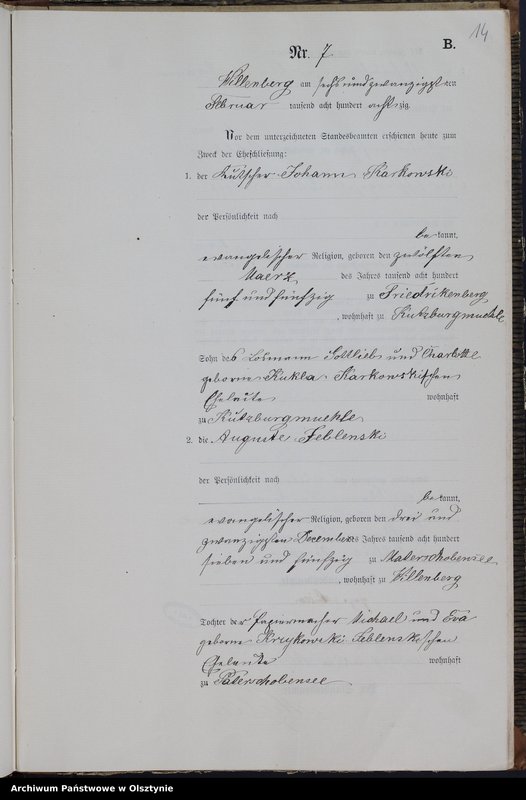 14
B.
Nr. 7
Willenberg am sechs und zwanzigsten
Februar tausend acht hundert achtzig.
Vor dem unterzeichneten Standesbeamten erschienen heute zum
Zweck der Eheschließung:
1. der Kutscher Johann Karkowski
der Persönlichkeit nach
be kannt,
evangelischer Religion, geboren den zwölften
Maerz des Jahres tausend acht hundert
fünf und fünfzig zu Friedrikenberg
, wohnhaft zu Kutzburgmuehle
Sohn des Losmann Gottlieb und Charlotte
geborne Kukla Karkowskischen
Eheleute wohnhaft
zu Kutzburgmuehle
2. die Auguste Leblenski
der Persönlichkeit nach
be kannt,
evangelischer Religion, geboren den drei und
zwanzigsten December des Jahres tausend acht hundert
sieben und fünfzig zu Materschobensee
, wohnhaft zu Willenberg
Tochter der Papiermacher Michael und Eva
geborne Krzykowski Leblenskischen
Eheleute wohnhaft
zu Materschobensee
Archiwum Państwowe w Olsztynie